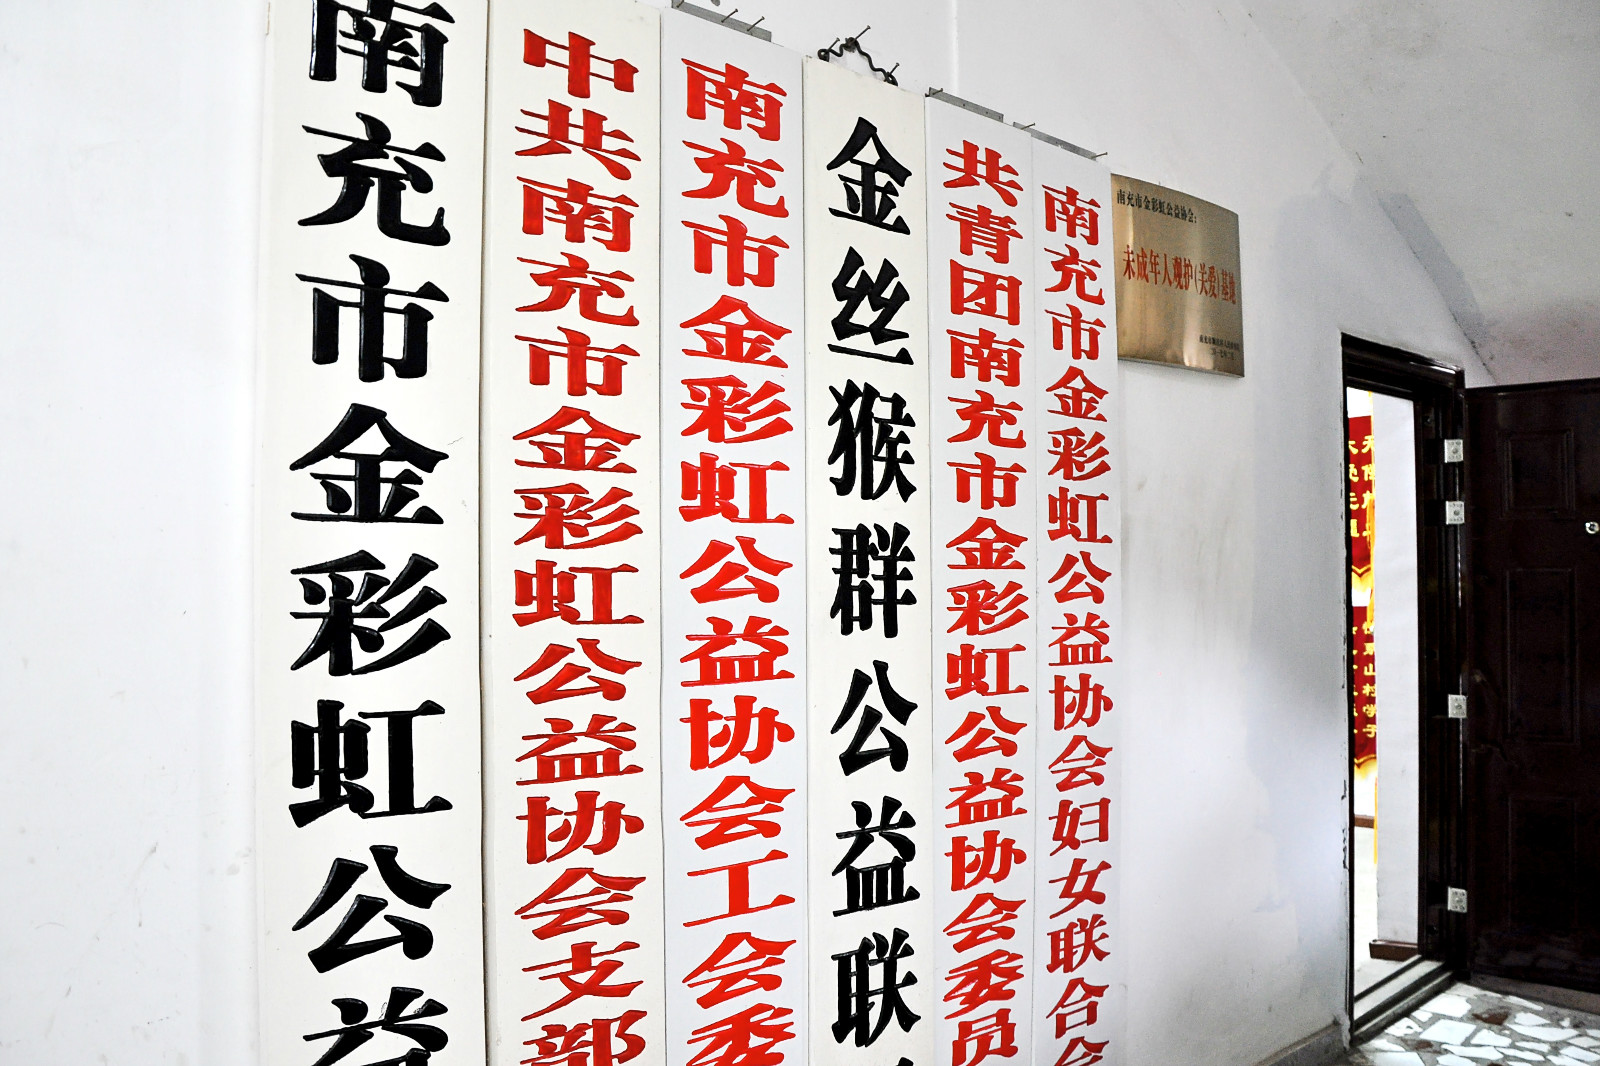 南充市金彩虹公益
中共南充市金彩虹公益协会支部
南充市金彩虹公益协会工会委
金丝猴群公益联
共青团南充市金彩虹公益协会委员
南充市金彩虹公益协会妇女联合会
南充市金彩虹公益协会：
未成年人观护（关爱）基地